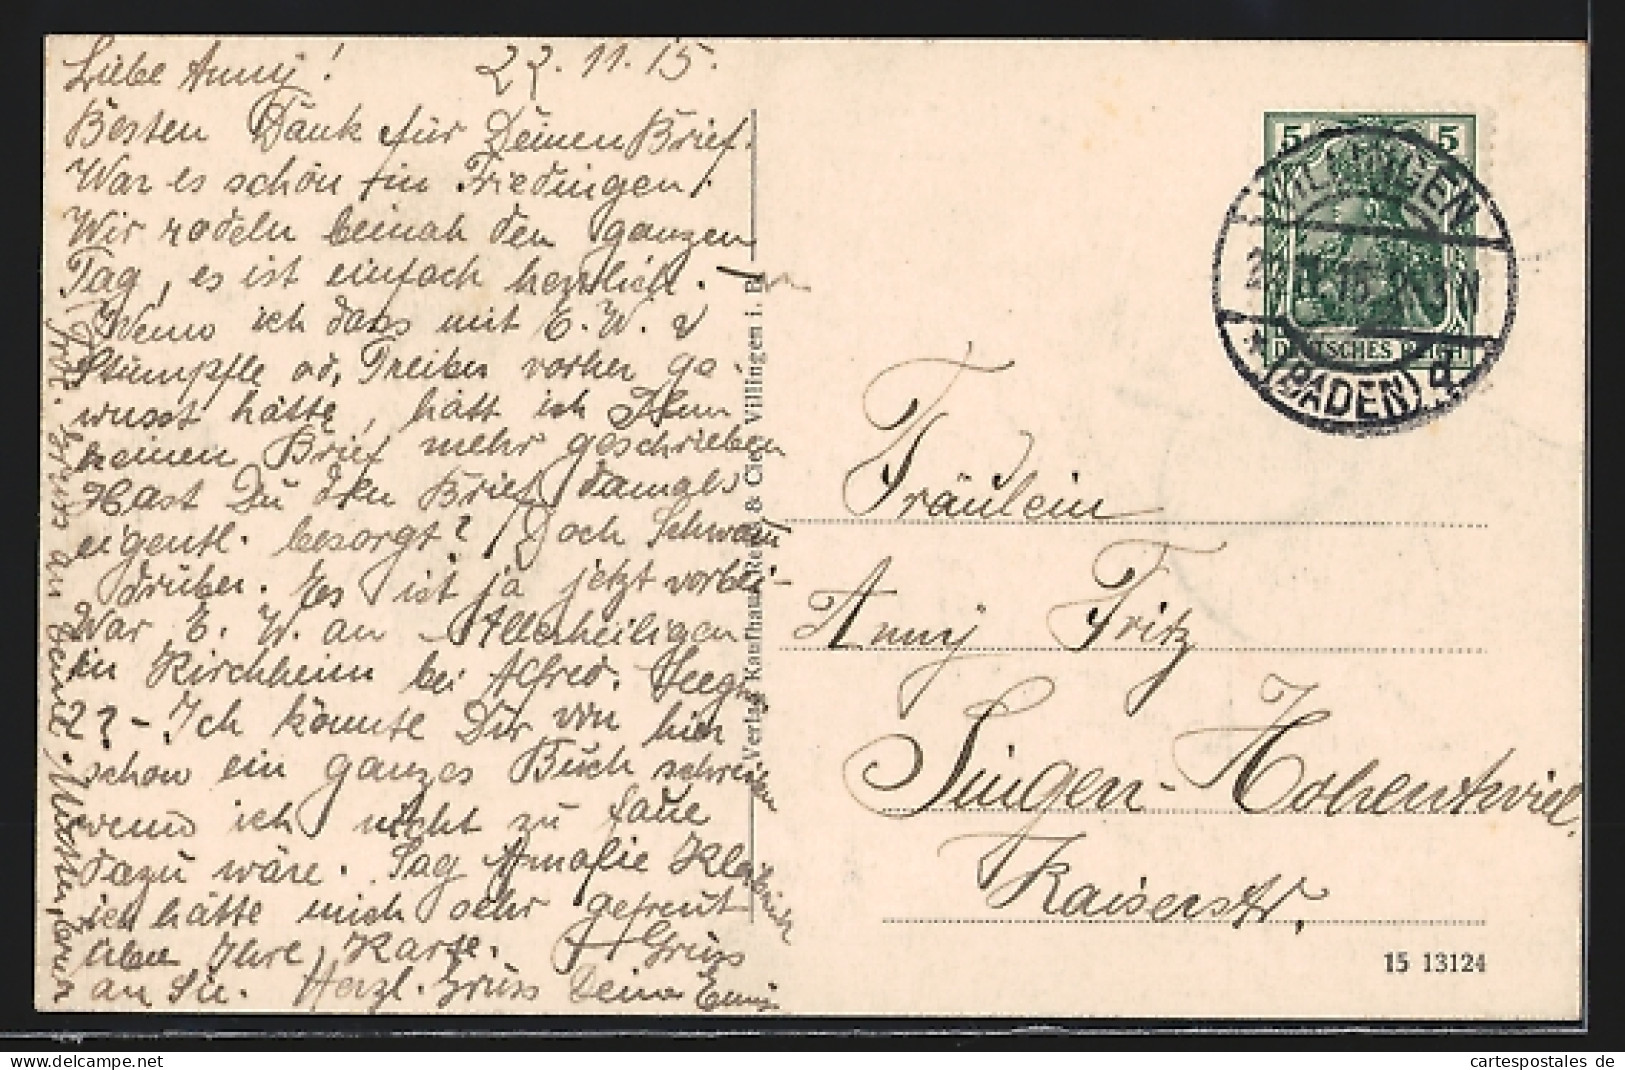 Liebe Anny! 22.11.15.
Besten Dank für Deinen Brief.
War es schön in Friedingen?
Wir rodeln beinah den ganzen
Tag, es ist einfach herrlich.
Wenn ich dass mit E. W. u
Stümpfle od. Treiber vorher ge-
wusst hätte, hätt ich Ihm
keinen Brief mehr geschrieben
Hast Du den Brief damals
eigentl. besorgt? Doch Schwam
drüber. Es ist ja jetzt vorbei-
War E. W. an Allerheiligen
in Kirchheim bei Alfred.
?? - Ich könnte Dir von hier
schon ein ganzes Buch schreiben
wenn ich nicht zu faul
dazu wäre. Sag Amalie
ich hätte mich sehr gefreut
über Ihre Karte. Gruss
an Sie. Herzl. Gruss Deine Emmy
Gruss an Deine
Verlag Kaufhaus & Cie. Villingen i. B.
5 5
DEUTSCHES REICH
VILLINGEN
(BADEN)
Fräulein
Anny Fritz
Singen-Hohentwiel.
Kaiserstr.
15 13124
www.cartespostales.de
cartespostales de